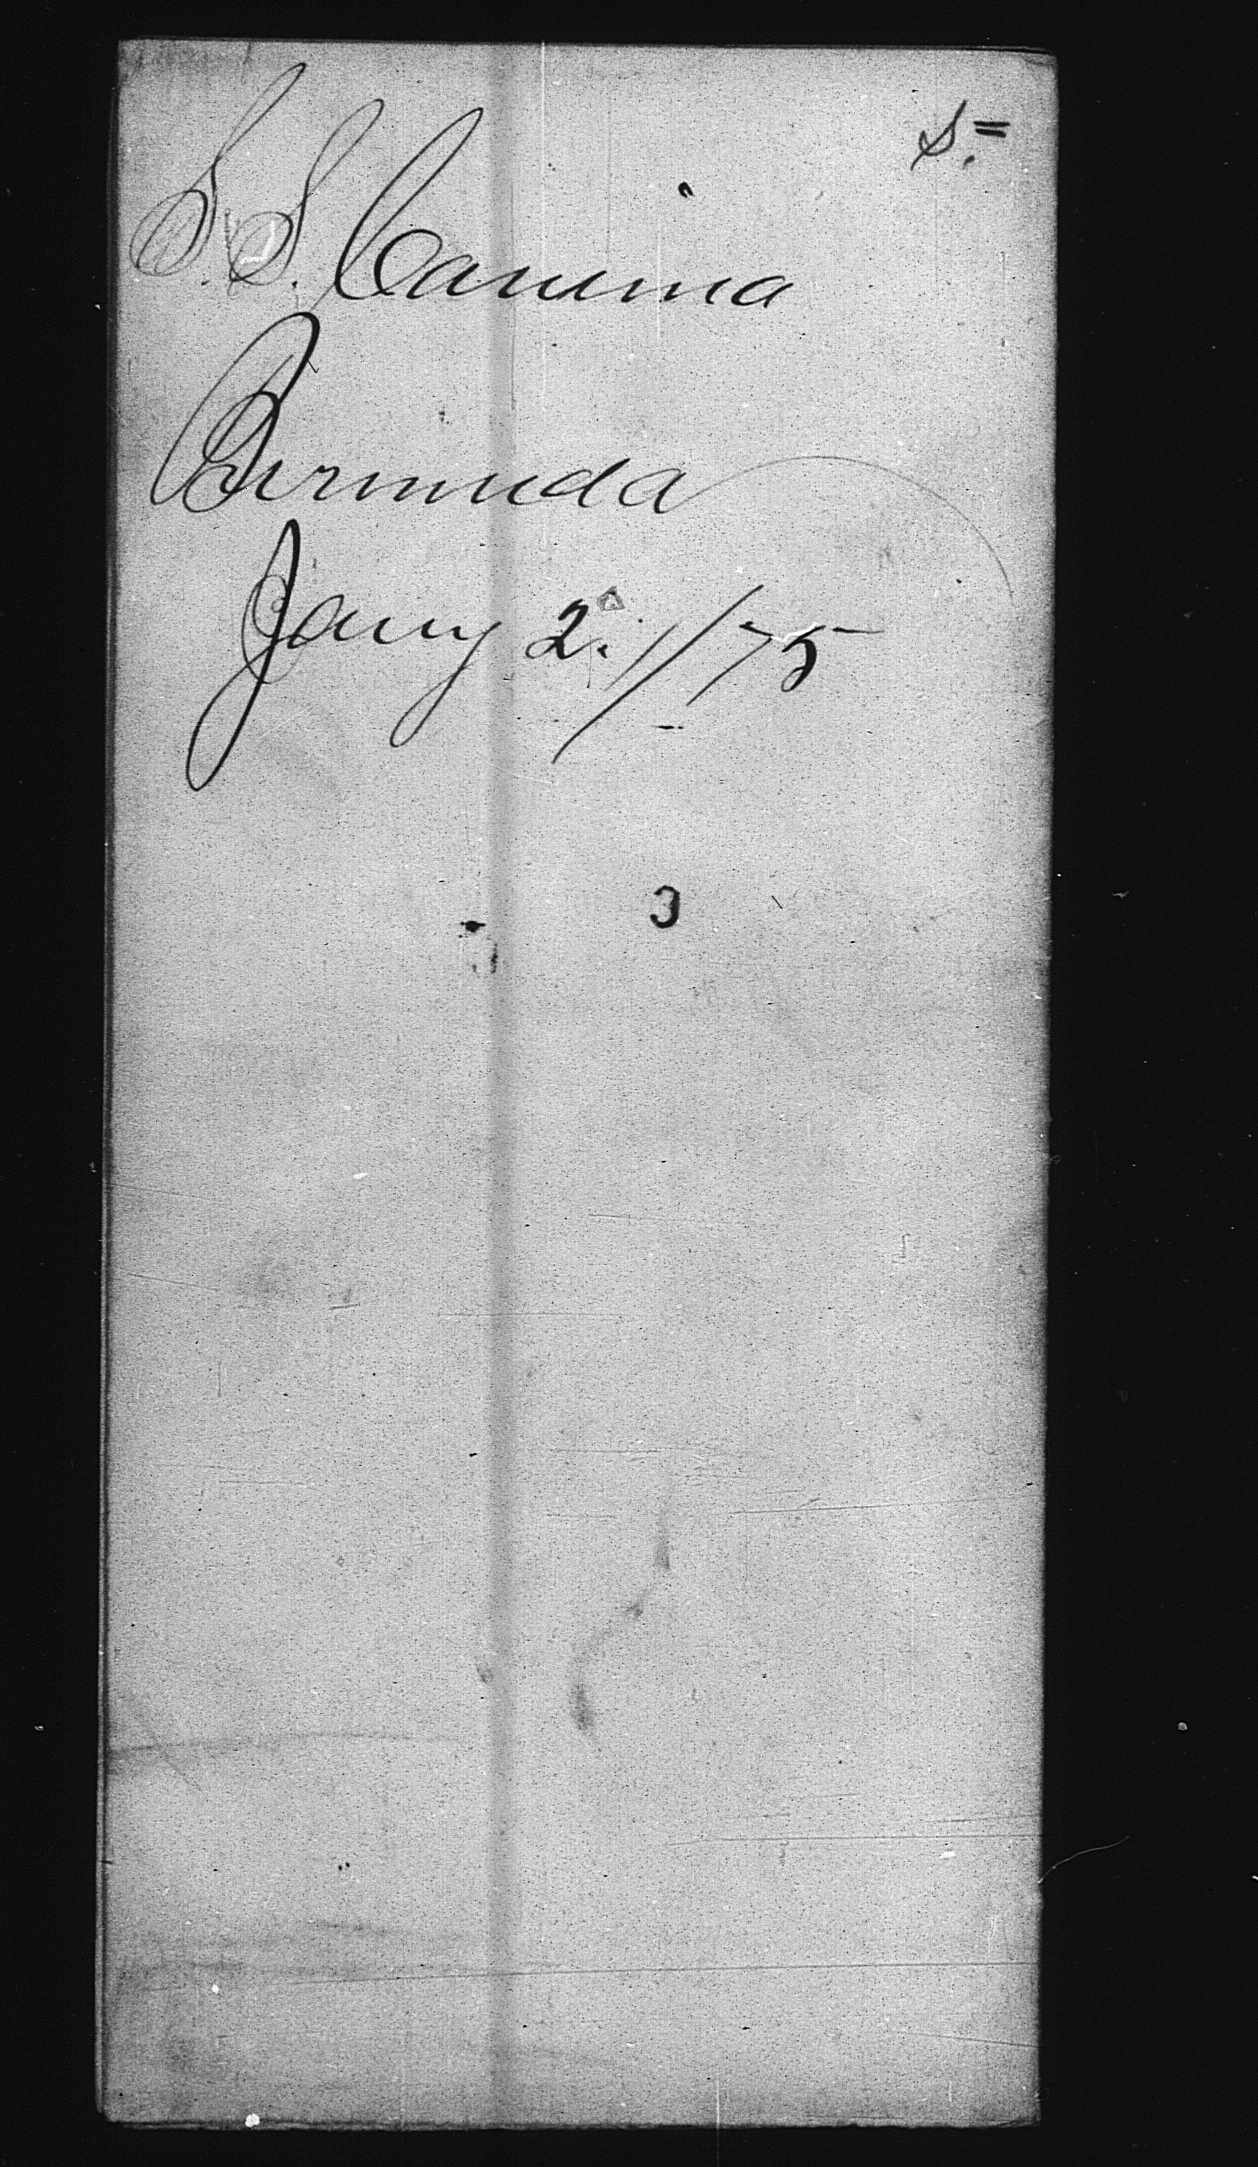 S.=
S.S. Canima
Bermuda
Jany 2./75
3